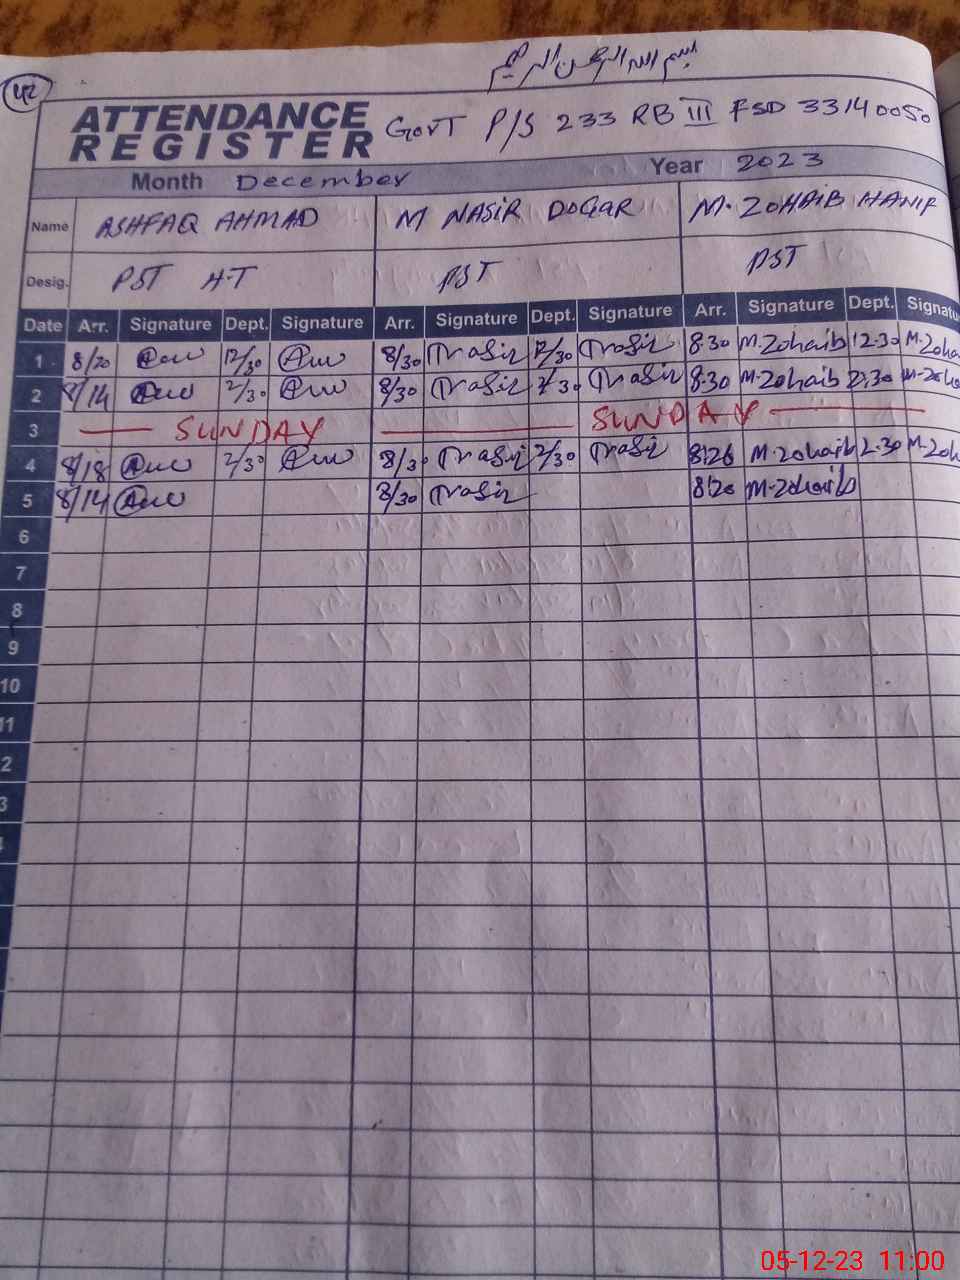 بسم اللہ الرحمن الرحیم
42
ATTENDANCE REGISTER GOVT P/S 233 RB III FSD 33140050
Month December Year 2023
Name ASHFAQ AHMAD M NASIR DOGAR M. ZOHAIB HANIF
Desig. PST H-T PST PST
Date Arr. Signature Dept. Signature Arr. Signature Dept. Signature Arr. Signature Dept. Signatu
1 8/20 12/30 8/30 Nasir 12/30 Nasir 8:30 M.Zohaib 12:30 M.Zoha
2 8/14 2/30 8/30 Nasir 2/30 Nasir 8:30 M-Zohaib 2:30 M-Zoha
3 SUNDAY SUNDAY
4 8/18 2/30 8/30 Nasir 2/30 Nasir 8:26 M.Zohaib 2:30 M-Zoh
5 8/14 8/30 Nasir 8:20 M-Zohaib
6
7
8
9
10
11
2
3
05-12-23 11:00